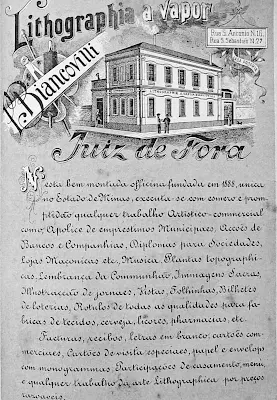 Lithographia a vapor
P. Biancovilli
Rua S. Antonio N. 18.
Rua S. Sebastião N. 27.
Juiz de Fora
Nesta bem montada officina fundada em 1888, unica
no Estado de Minas, executa-se com esmero e prom-
ptidão qualquer trabalho Artistico-commercial
como, Apolice de emprestimos Municipaes, Acções de
Bancos e Companhias, Diplomas para Sociedades,
Lojas Maçonicas etc, Musica, Plantas topographi-
cas, Lembrança da Communhão, Immagens Sacras,
Illustracção de jornaes, Listas, Folhinhas, Bilhetes
de loterias, Rotulos de todas as qualidades para fa-
bricas de tecidos, cerveja, licores, pharmacias, etc.
Facturas, recibos, letras em branco, cartões com-
merciaes, Cartões de visita especiaes, papel e envelops
com monogrammas. Participações de casamento, menu,
e qualquer trabalho da arte Lithographica por preços
razoaveis.